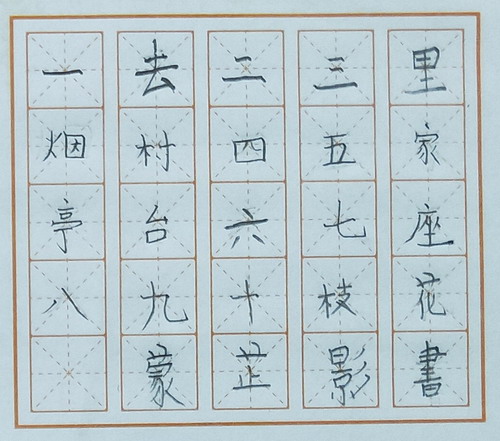 一去二三里
烟村四五家
亭台六七座
八九十枝花
蒙芷影書